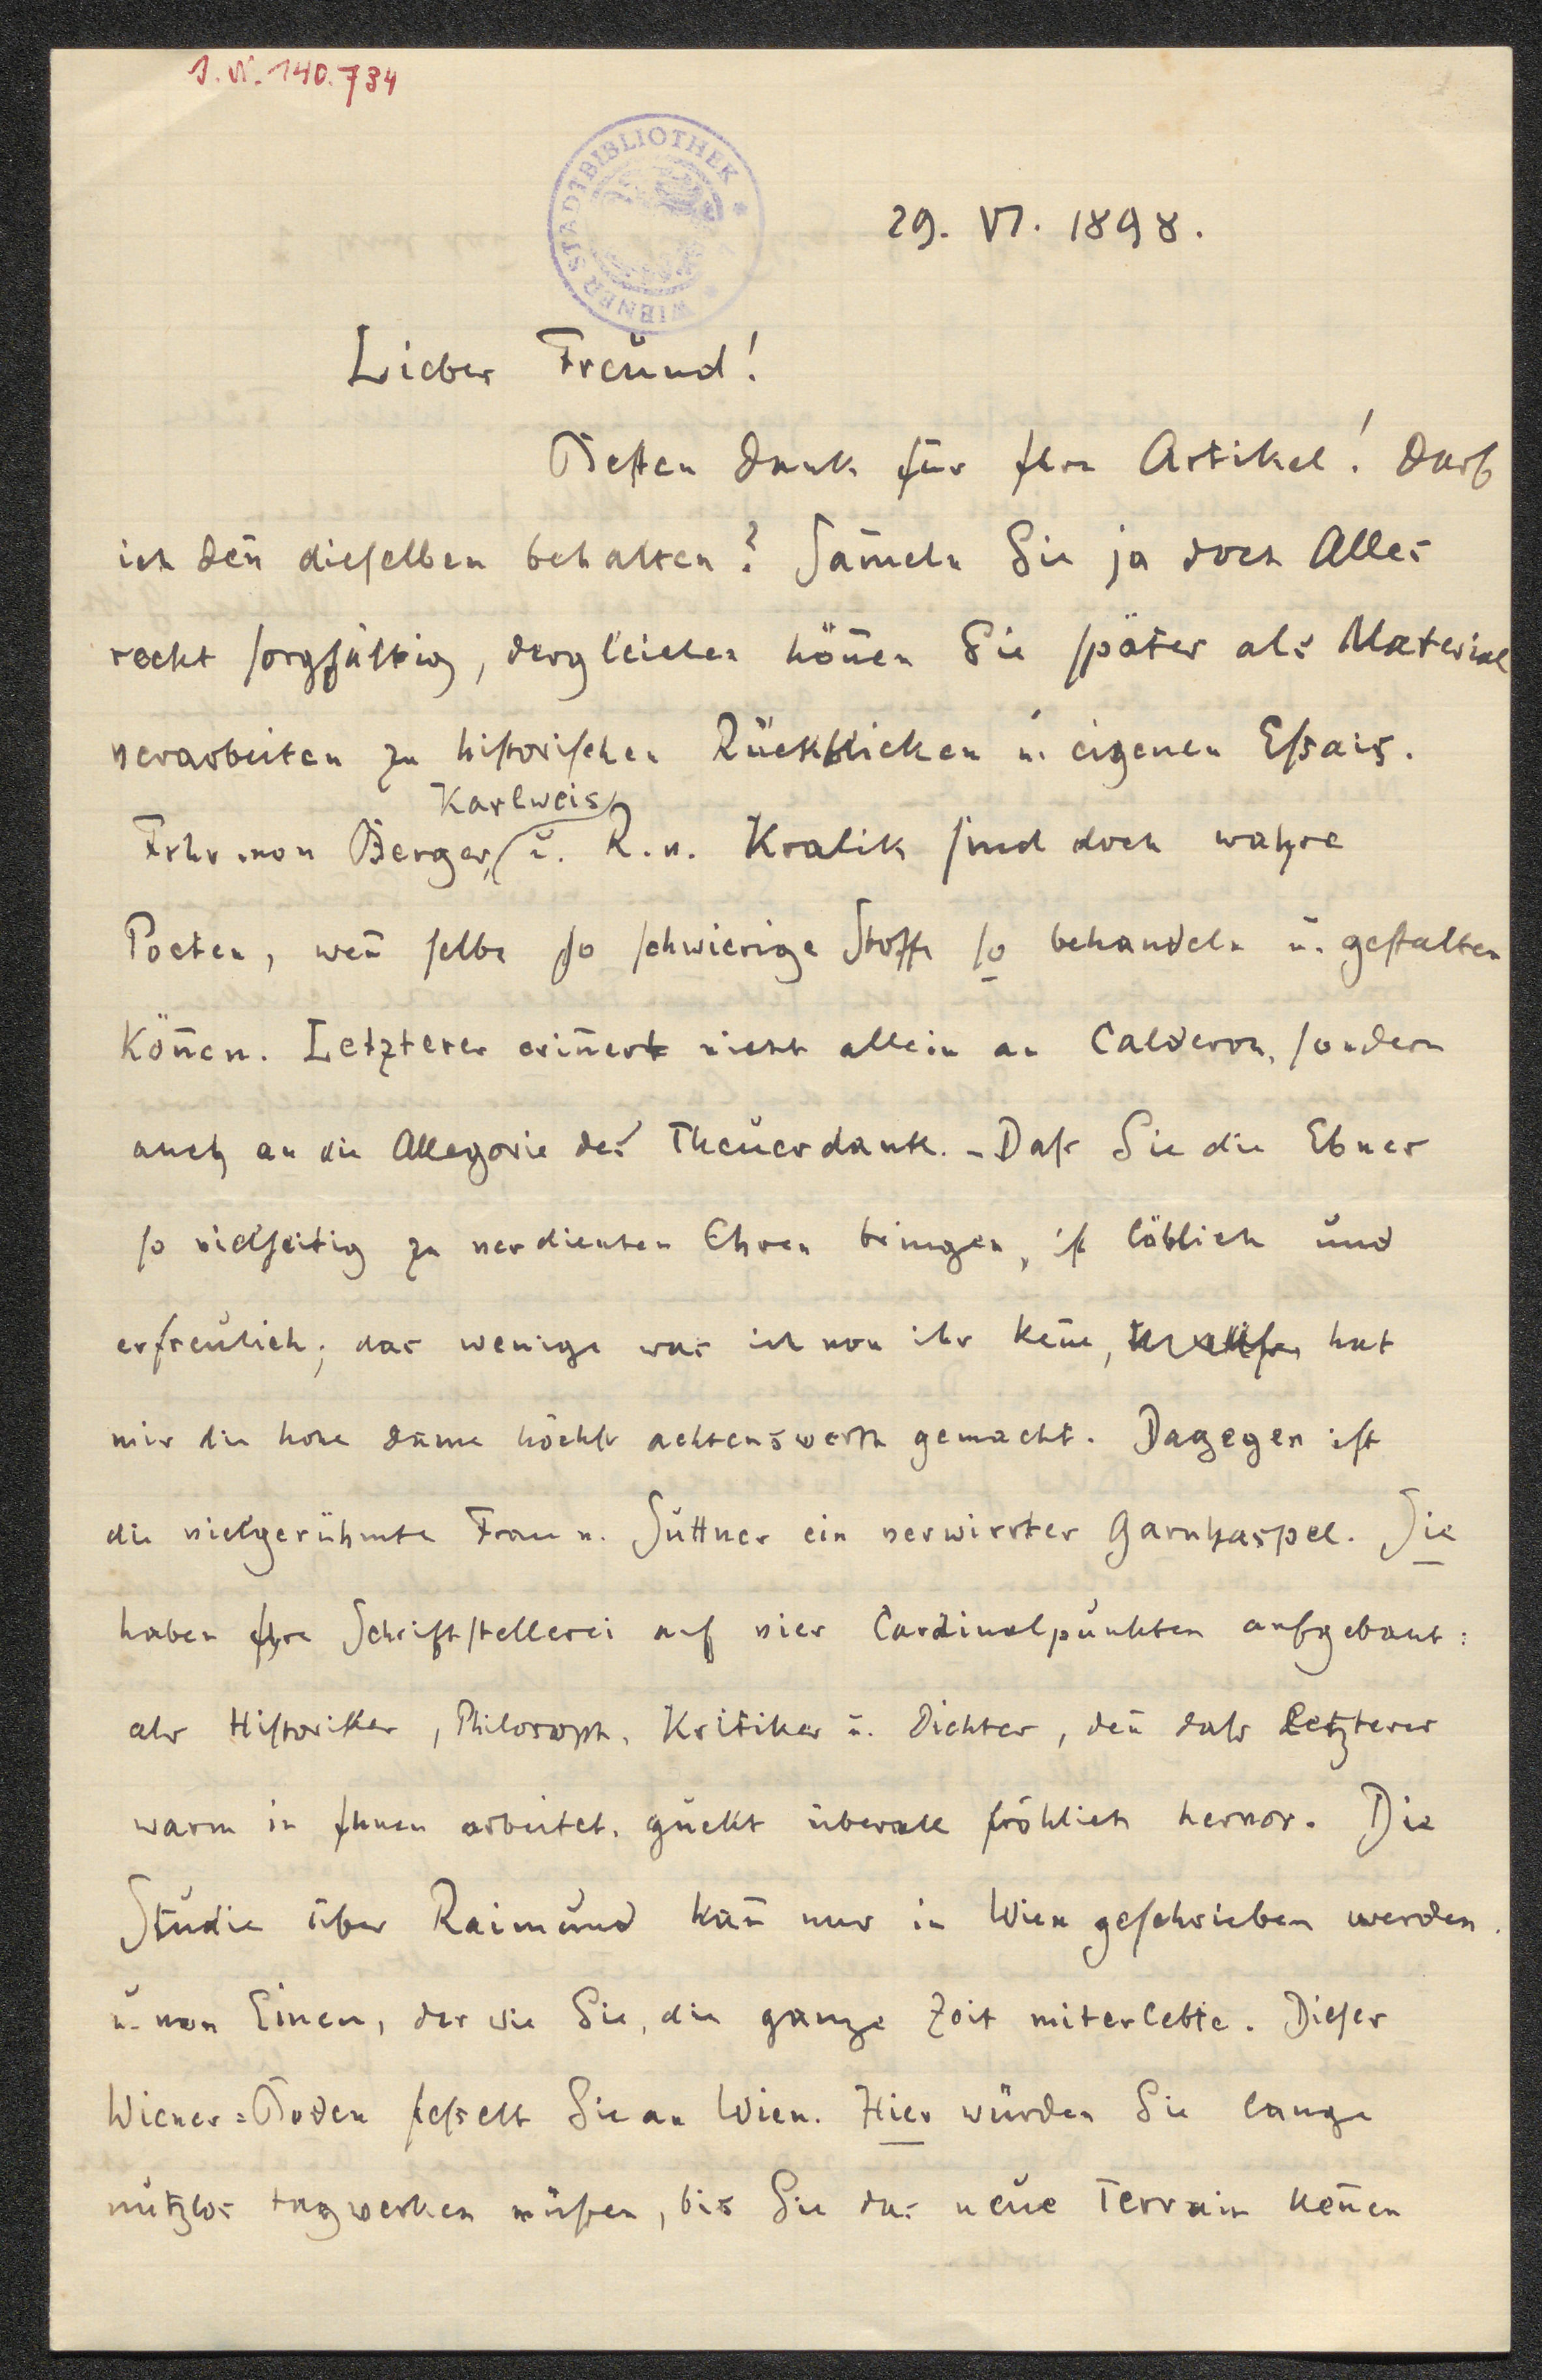 I. N. 140.734
WIENER STADTBIBLIOTHEK
29. VI. 1898.
Lieber Freund!
Besten Dank für Ihre Artikel! Darf
ich deñ dieselben behalten? Sam̃eln Sie ja doch Alles
recht sorgfältig, dergleichen köñen Sie später als Material
verarbeiten zu historischen Rückblicken u. eigenen Essais.
Karlweis
Frhr. von Berger, u. R. v. Kralik sind doch wahre
Poeten, weñ selbe so schwierige Stoffe so behandeln u. gestalten
köñen. Letzterer eriñert nicht allein an Calderon, sondern
auch an die Allegorie des Theuerdank. – Daß Sie die Ebner
so vielseitig zu verdienten Ehren bringen, ist löblich und
erfreulich; das wenige was ich von ihr keñe, hat
mir die hohe Dame höchst achtenswerth gemacht. Dagegen ist
die vielgerühmte Frau v. Suttner ein verwirrter Garnhaspel. Sie
haben Ihre Schriftstellerei auf vier Cardinalpunkten aufgebaut:
als Historiker, Philosoph, Kritiker u. Dichter, deñ daß Letzterer
warm in Ihnen arbeitet, guckt überall fröhlich hervor. Die
Studie über Raimund kañ nur in Wien geschrieben werden
u. von Einen, der wie Sie, die ganze Zeit miterlebte. Dieser
Wiener=Boden fesselt Sie an Wien. Hier würden Sie lange
nutzlos tagwerken müssen, bis Sie das neue Terrain keñen